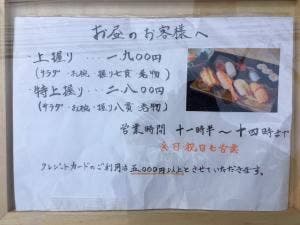 お昼のお客様へ
・上握り・・・一、九〇〇円
(サラダ・お椀・握り七貫・巻物)
・特上握り・・・二、八〇〇円
(サラダ・お椀・握り八貫・巻物)
営業時間 十一時半〜十四時まで
土日祝日も営業
クレジットカードのご利用は五、〇〇〇円以上とさせていただきます。